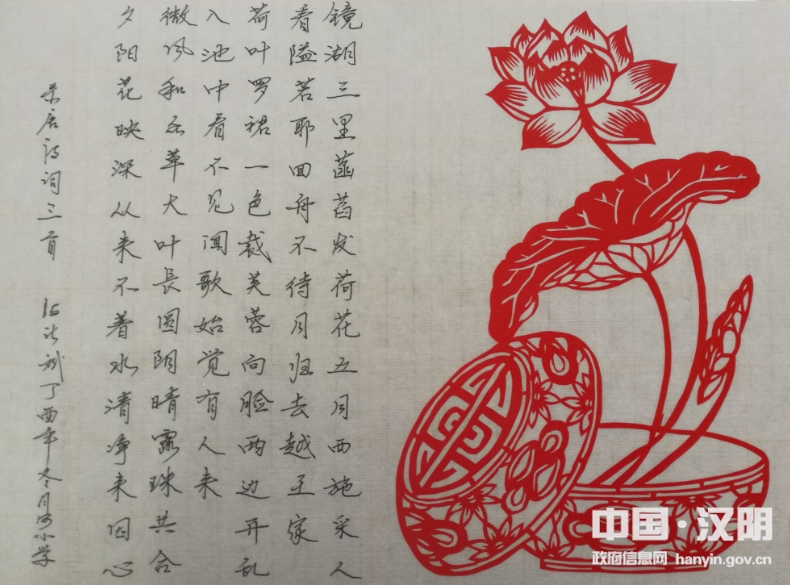 镜湖三里菡萏发荷花五月西施采人
看隘若耶回舟不待月归去越王家
荷叶罗裙一色裁芙蓉向脸两边开乱
入池中看不见闻歌始觉有人来
微风和众草大叶长圆阴晴露珠共合
夕阳花映深从来不着水清净来因心
录唐诗词三首 丁酉年冬月小学
中国·汉阴
政府信息网 hanyin.gov.cn